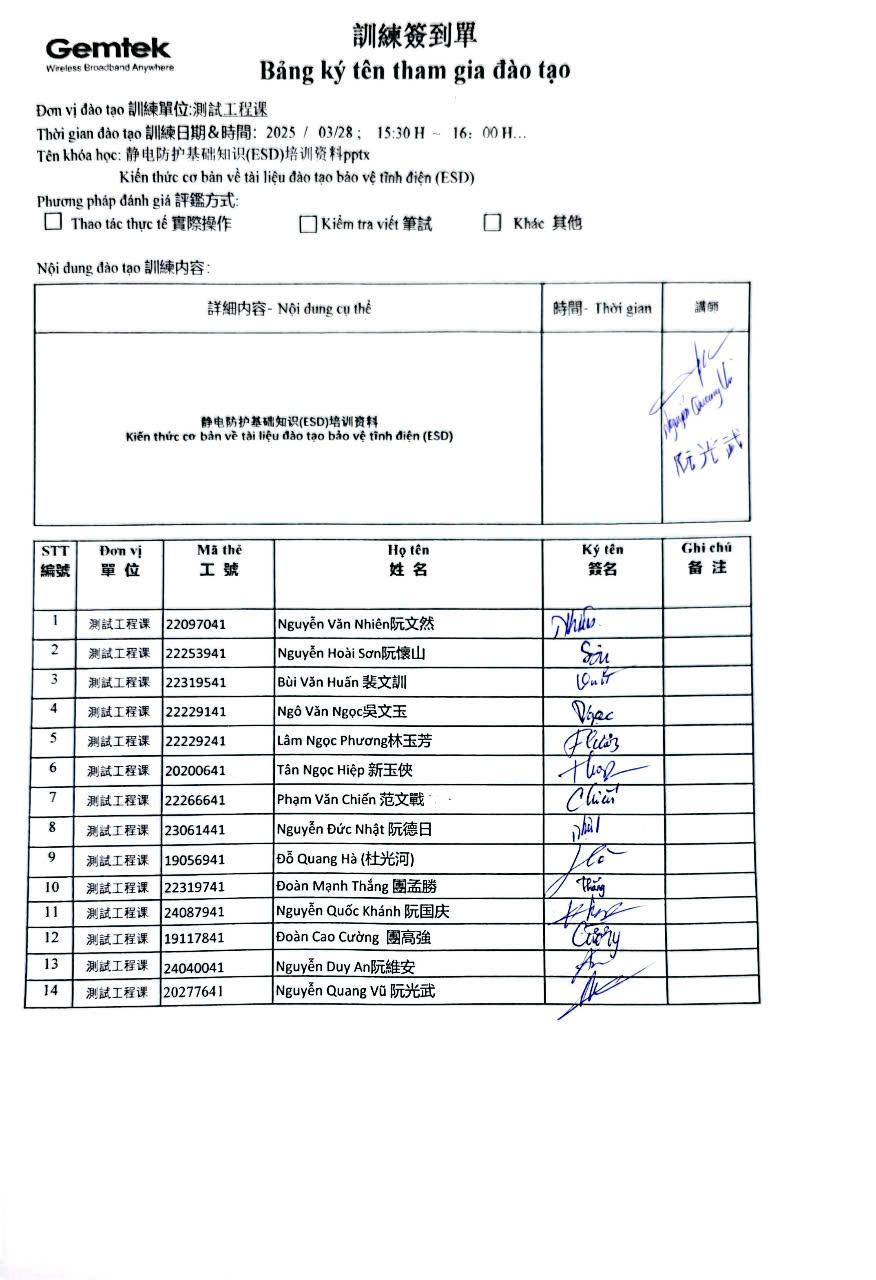 Gemtek
Wireless Broadband Anywhere
訓練簽到單
Bảng ký tên tham gia đào tạo
Đơn vị đào tạo 訓練單位:測試工程课
Thời gian đào tạo 訓練日期&時間: 2025 / 03/28 ; 15:30 H ~ 16: 00 H...
Tên khóa học: 静电防护基础知识(ESD)培训资料pptx
Kiến thức cơ bản về tài liệu đào tạo bảo vệ tĩnh điện (ESD)
Phương pháp đánh giá 評鑑方式:
Thao tác thực tế 實際操作 Kiểm tra viết 筆試 Khác 其他
Nội dung đào tạo 訓練内容:
詳細内容- Nội dung cụ thể 時間- Thời gian 講師
静电防护基础知识(ESD)培训资料
Kiến thức cơ bản về tài liệu đào tạo bảo vệ tĩnh điện (ESD)
Nguyễn Quang Vũ
阮光武
STT Đơn vị Mã thẻ Họ tên Ký tên Ghi chú
編號 單 位 工 號 姓 名 簽名 备 注
1 測試工程课 22097041 Nguyễn Văn Nhiên阮文然 Nhiên
2 測試工程课 22253941 Nguyễn Hoài Sơn阮懷山 Sơn
3 測試工程课 22319541 Bùi Văn Huấn 裴文訓
4 測試工程课 22229141 Ngô Văn Ngọc吳文玉 Ngọc
5 測試工程课 22229241 Lâm Ngọc Phương林玉芳
6 測試工程课 20200641 Tân Ngọc Hiệp 新玉俠
7 測試工程课 22266641 Phạm Văn Chiến 范文戰 Chiến
8 測試工程课 23061441 Nguyễn Đức Nhật 阮德日
9 測試工程课 19056941 Đỗ Quang Hà (杜光河) Hà
10 測試工程课 22319741 Đoàn Mạnh Thắng 團孟勝 Thắng
11 測試工程课 24087941 Nguyễn Quốc Khánh 阮国庆
12 測試工程课 19117841 Đoàn Cao Cường 團高強 Cường
13 測試工程课 24040041 Nguyễn Duy An阮維安 An
14 測試工程课 20277641 Nguyễn Quang Vũ 阮光武